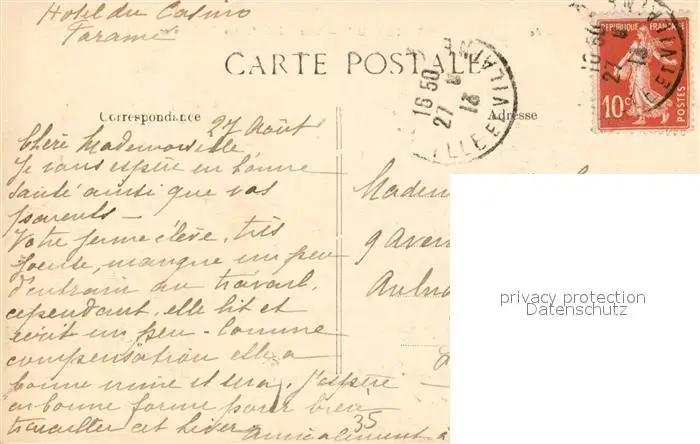 Hotel du Casino
Paramé
CARTE POSTALE
Correspondance
Adresse
27 Août
Chère Mademoiselle
Je vous espère en bonne
santé ainsi que vos
parents —
Votre jeune élève, très
joueuse, manque un peu
d'entrain au travail,
cependant, elle lit et
écrit un peu - Comme
compensation elle a
bonne mine et sera, j'espère
en bonne forme pour bien
travailler cet hiver
amicalement à
35
Madem
9 Aven
Aulna
16 50
27 8
13
ILLE ET VILAINE
REPUBLIQUE FRANÇAISE
10c
POSTES
16 50
27
13
E ET VILAIN
privacy protection
Datenschutz